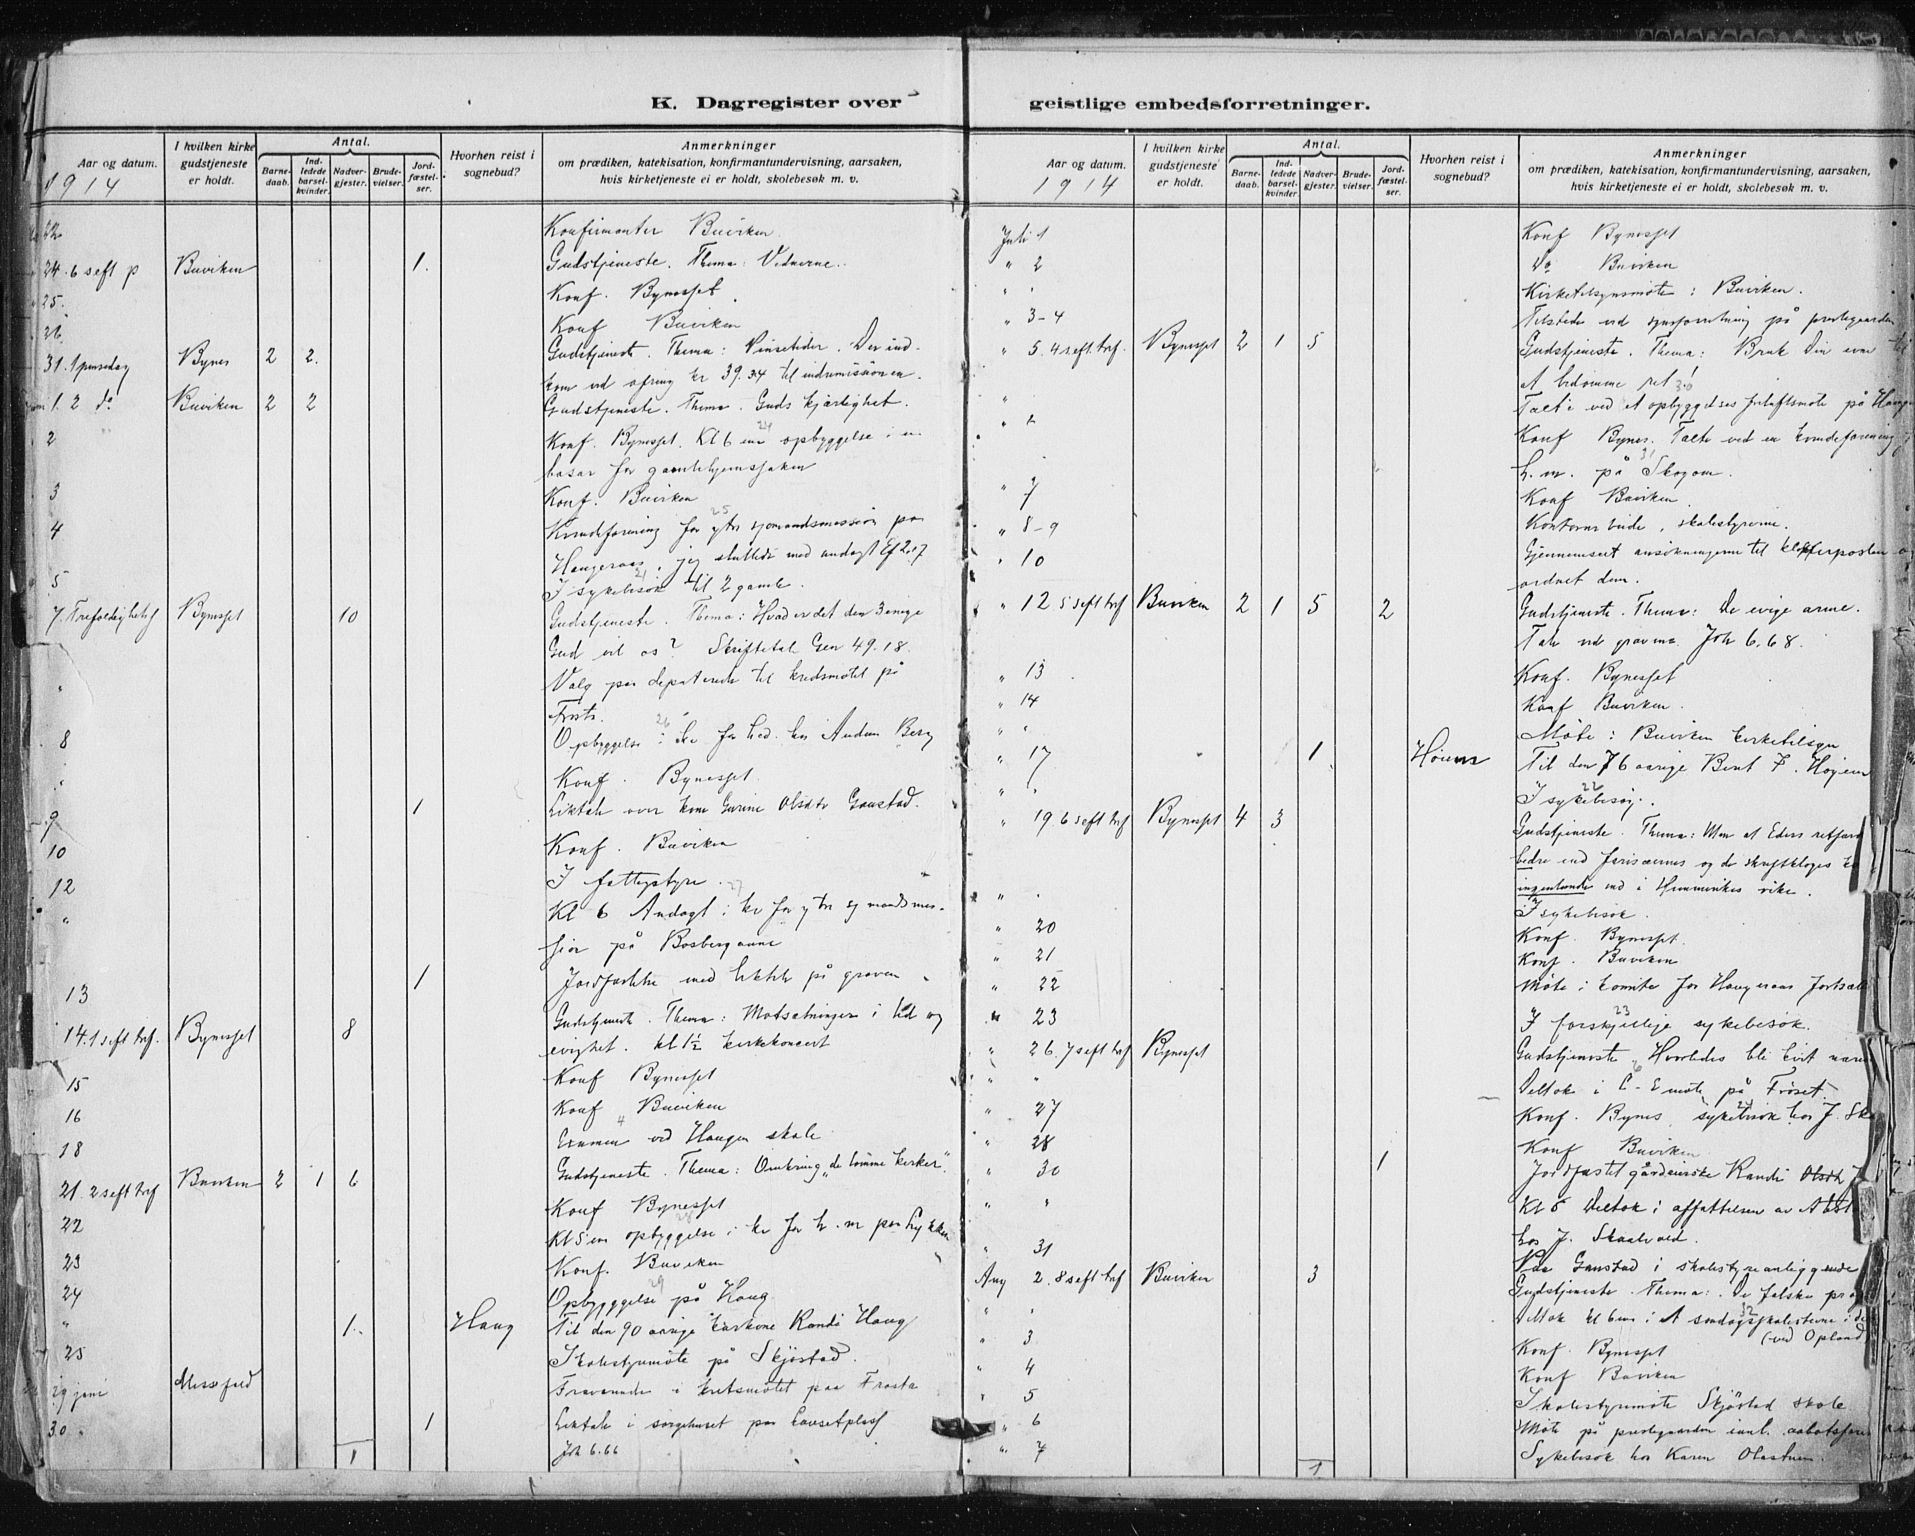 K. Dagregister over
Aar og datum.
1914
I hvilken kirke gudstjeneste er holdt.
Antal.
Barne-daab.
Ind-ledede barsel-kvinder.
Nadver-gjester.
Brude-vielser.
Jord-fæstel-ser.
Hvorhen reist i sognebud?
Anmerkninger
om prædiken, katekisation, konfirmantundervisning, aarsaken,
hvis kirketjeneste ei er holdt, skolebesøk m. v.
22 Konfirmanter Buviken
24. 6 s eft p Buviken 1. Gudstjeneste. Thema: Vidnerne.
25. Konf. Bynesset
26 Konf Buviken
31. 1 pinsedag Bynes 2 2. Gudstjeneste. Thema: Pinsetider. Der ind-
kom ved ofring kr 39.34 til indremissionen.
1. 2 do Buviken 2 2 Gudstjeneste. Thema. Guds kjærlighet.
2 Konf. Bynesset. Kl 6 em opbyggelse i en
24
basar for gamlehjemssaken
3 Konf. Buviken
25
4 Kvindeforening for ytre sjømandsmission paa
Haugeraas, jeg sluttede med andagt Ef 2.17
5 I sykebesøk til 2 gamle.
21
7. Trefoldighetsf Bynesset 10 Gudstjeneste. Thema: Hvad er det den 3 enige
Gud vil os? Skriftetale Gen 49.18.
" Valg paa deputerede til kredsmøtet på
Frosta.
26
8 Opbyggelse i kv for hed. hos Anders Berg
" Konf. Bynesset.
9 1 Liktale over kone Gurine Olsdtr Gaustad.
10 Konf. Buviken
12 I fattigstyre.
27
" Kl 6 Andagt i kv for ytre sjømandsmis-
sion på Bosbergaune
13 1 Jordfæstelse med liktale på graven
14. 1 s eft tref. Bynesset 8 Gudstjeneste. Thema: Motsætningen i tid og
evighet. kl 1½ kirkekoncert
15 Konf Bynesset
16 Konf Buviken
4
18 Examen ved Haugen skole
21. 2 s eft tref Buviken 2 1 6 Gudstjeneste. Thema: Omkring „de tomme kirker".
22 Konf Bynesset
28
Kl 5 em opbyggelse i kv for h. m paa Lykkien
23 Konf. Buviken
29
24 Opbyggelse på Haug
" 1. Haug Til den 90 aarige kårkone Randi Haug
25 Skolestyremøte på Skjøstad.
29 juni Messefald Fraværende i kretsmøtet paa Frosta
30. 1 Liktale i sørgehuset paa Løvsetplass
1 Joh 6.66
geistlige embedsforretninger.
Aar og datum.
1914
I hvilken kirke gudstjeneste er holdt.
Antal.
Barne-daab.
Ind-ledede barsel-kvinder.
Nadver-gjester.
Brude-vielser.
Jord-fæstel-ser.
Hvorhen reist i sognebud?
Anmerkninger
om prædiken, katekisation, konfirmantundervisning, aarsaken,
hvis kirketjeneste ei er holdt, skolebesøk m. v.
Juli 1 Konf Bynesset
" 2 Do Buviken
" " Kirketilsynsmøte i Buviken.
" 3-4 Tilstede ved synsforretning på prestegaarden
" 5. 4 s eft. tref. Bynesset 2 1 5 Gudstjeneste. Thema: Bruk Din evne til
at bedømme ret!
30
" Talte ved et opbyggelses friluftsmøte på Haugen
" Konf Bynes. Talte ved en kvindeforening f
31
h. m. på Skogan.
" 7 Konf Buviken
" 8-9 Kontorarbeide, skolestyrerne.
" 10 Gjennemset ansøkningerne til klokkerposten og
ordnet dem.
" 12 5 s eft tref Buviken 2 1 5 2 Gudstjeneste. Thema: De evige arme.
Tale ved gravene Joh 6.68.
" 13 Konf. Bynesset
" 14 Konf Buviken.
" " Møte i Buviken kirketilsyn
" 17 1 Høiem Til den 76 aarige Berit F. Høyem
22
" " I sykebesøg.
" 19. 6 s eft tref Bynesset 4 3 Gudstjeneste. Thema: Uten at Eders retfærd
bedre end farisæernes og de skriftkloges k
ingenlunde ind i Himmerikes rike.
" " I sykebesøk.
" 20 Konf. Bynesset.
" 21 Konf. Buviken
" 22 Møte i komite for Haugeraas fortsat
23
" 23 I forskjellige sykebesøk.
" 26. 7 s eft tref Bynesset Gudstjeneste. Hvorledes bli kvit
6
" " Deltok i C-E møte på Frøset.
24
" 27 Konf. Bynes, sykebesøk hos J. Ska
" 28 Konf Buviken
" 30 1 Jordfæstet gårdenirske Randi Olsdtr
" " Kl 5 Deltok i affattelsen av
hos J. Skaalvold.
" 31 Paa Gaustad i skolestyreanliggende
Aug 2. 8 s eft tref Buviken 3 Gudstjeneste. Thema: De falske prof
32
" " Deltok kl 6 em i et søndagsskolestevne i
(ved Opland
" 3 Konf. Bynesset
" 4 Konf Buviken
" 5 Skolestyremøte Skjøstad skole
" 6 Møte på prestegaarden
" 7 1 Sykebesøk hos Karen